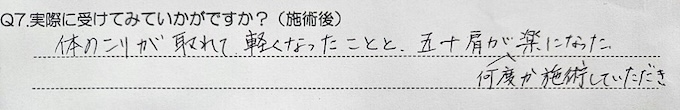 Q7.実際に受けてみていかがですか?(施術後)
体のコリが取れて軽くなったことと、五十肩が楽になった。
何度か施術していただき